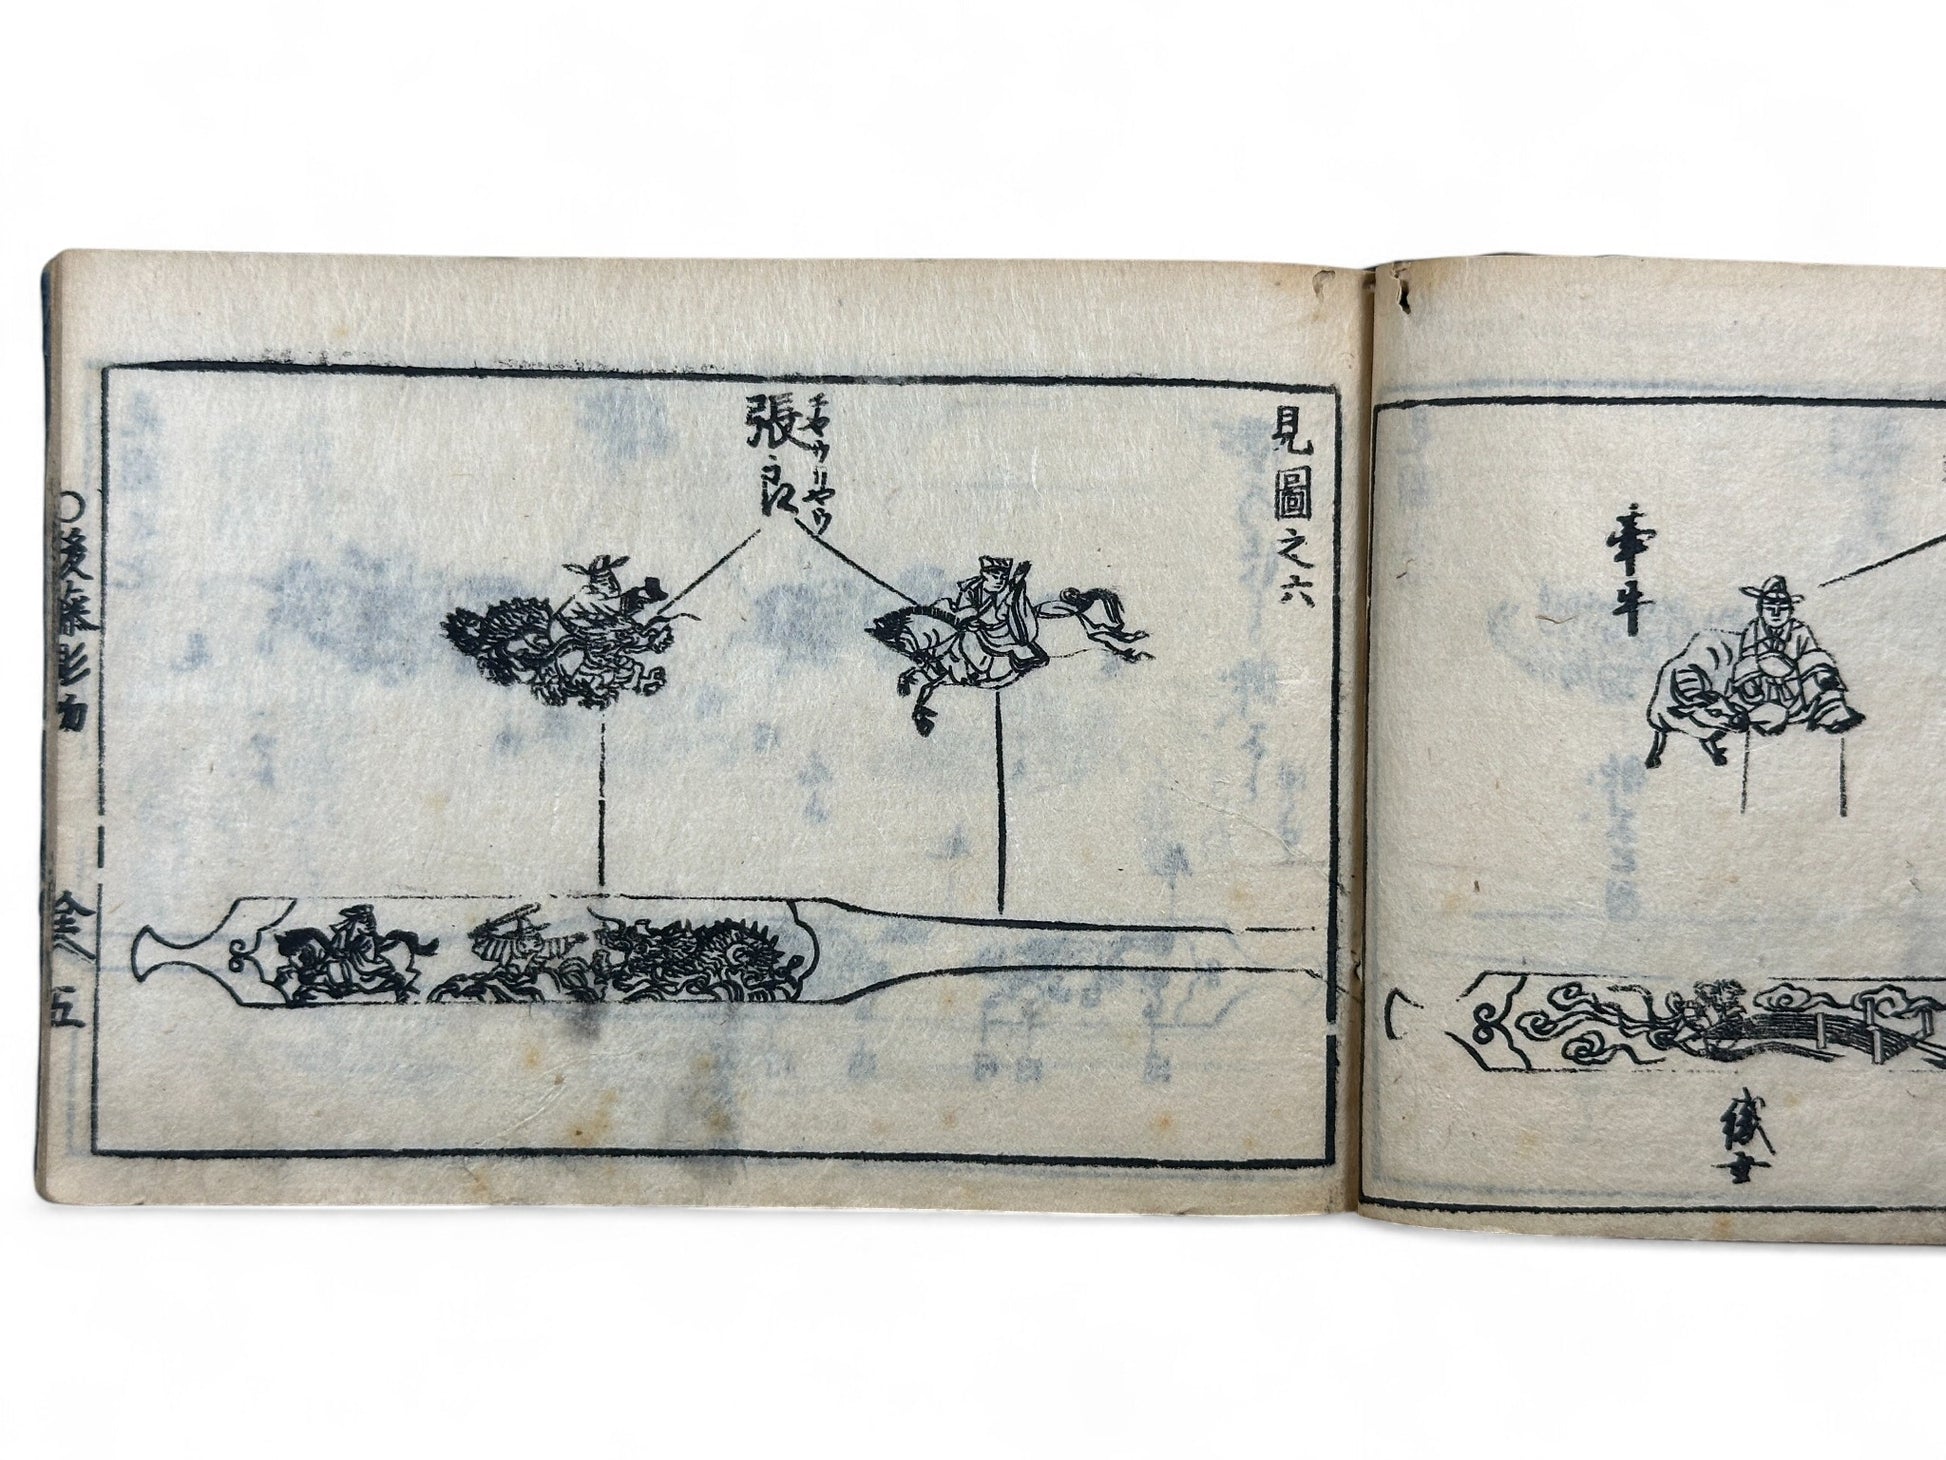 牽牛
織女
見圖之六
張良
チヤウリヤウ
後藤彫
五